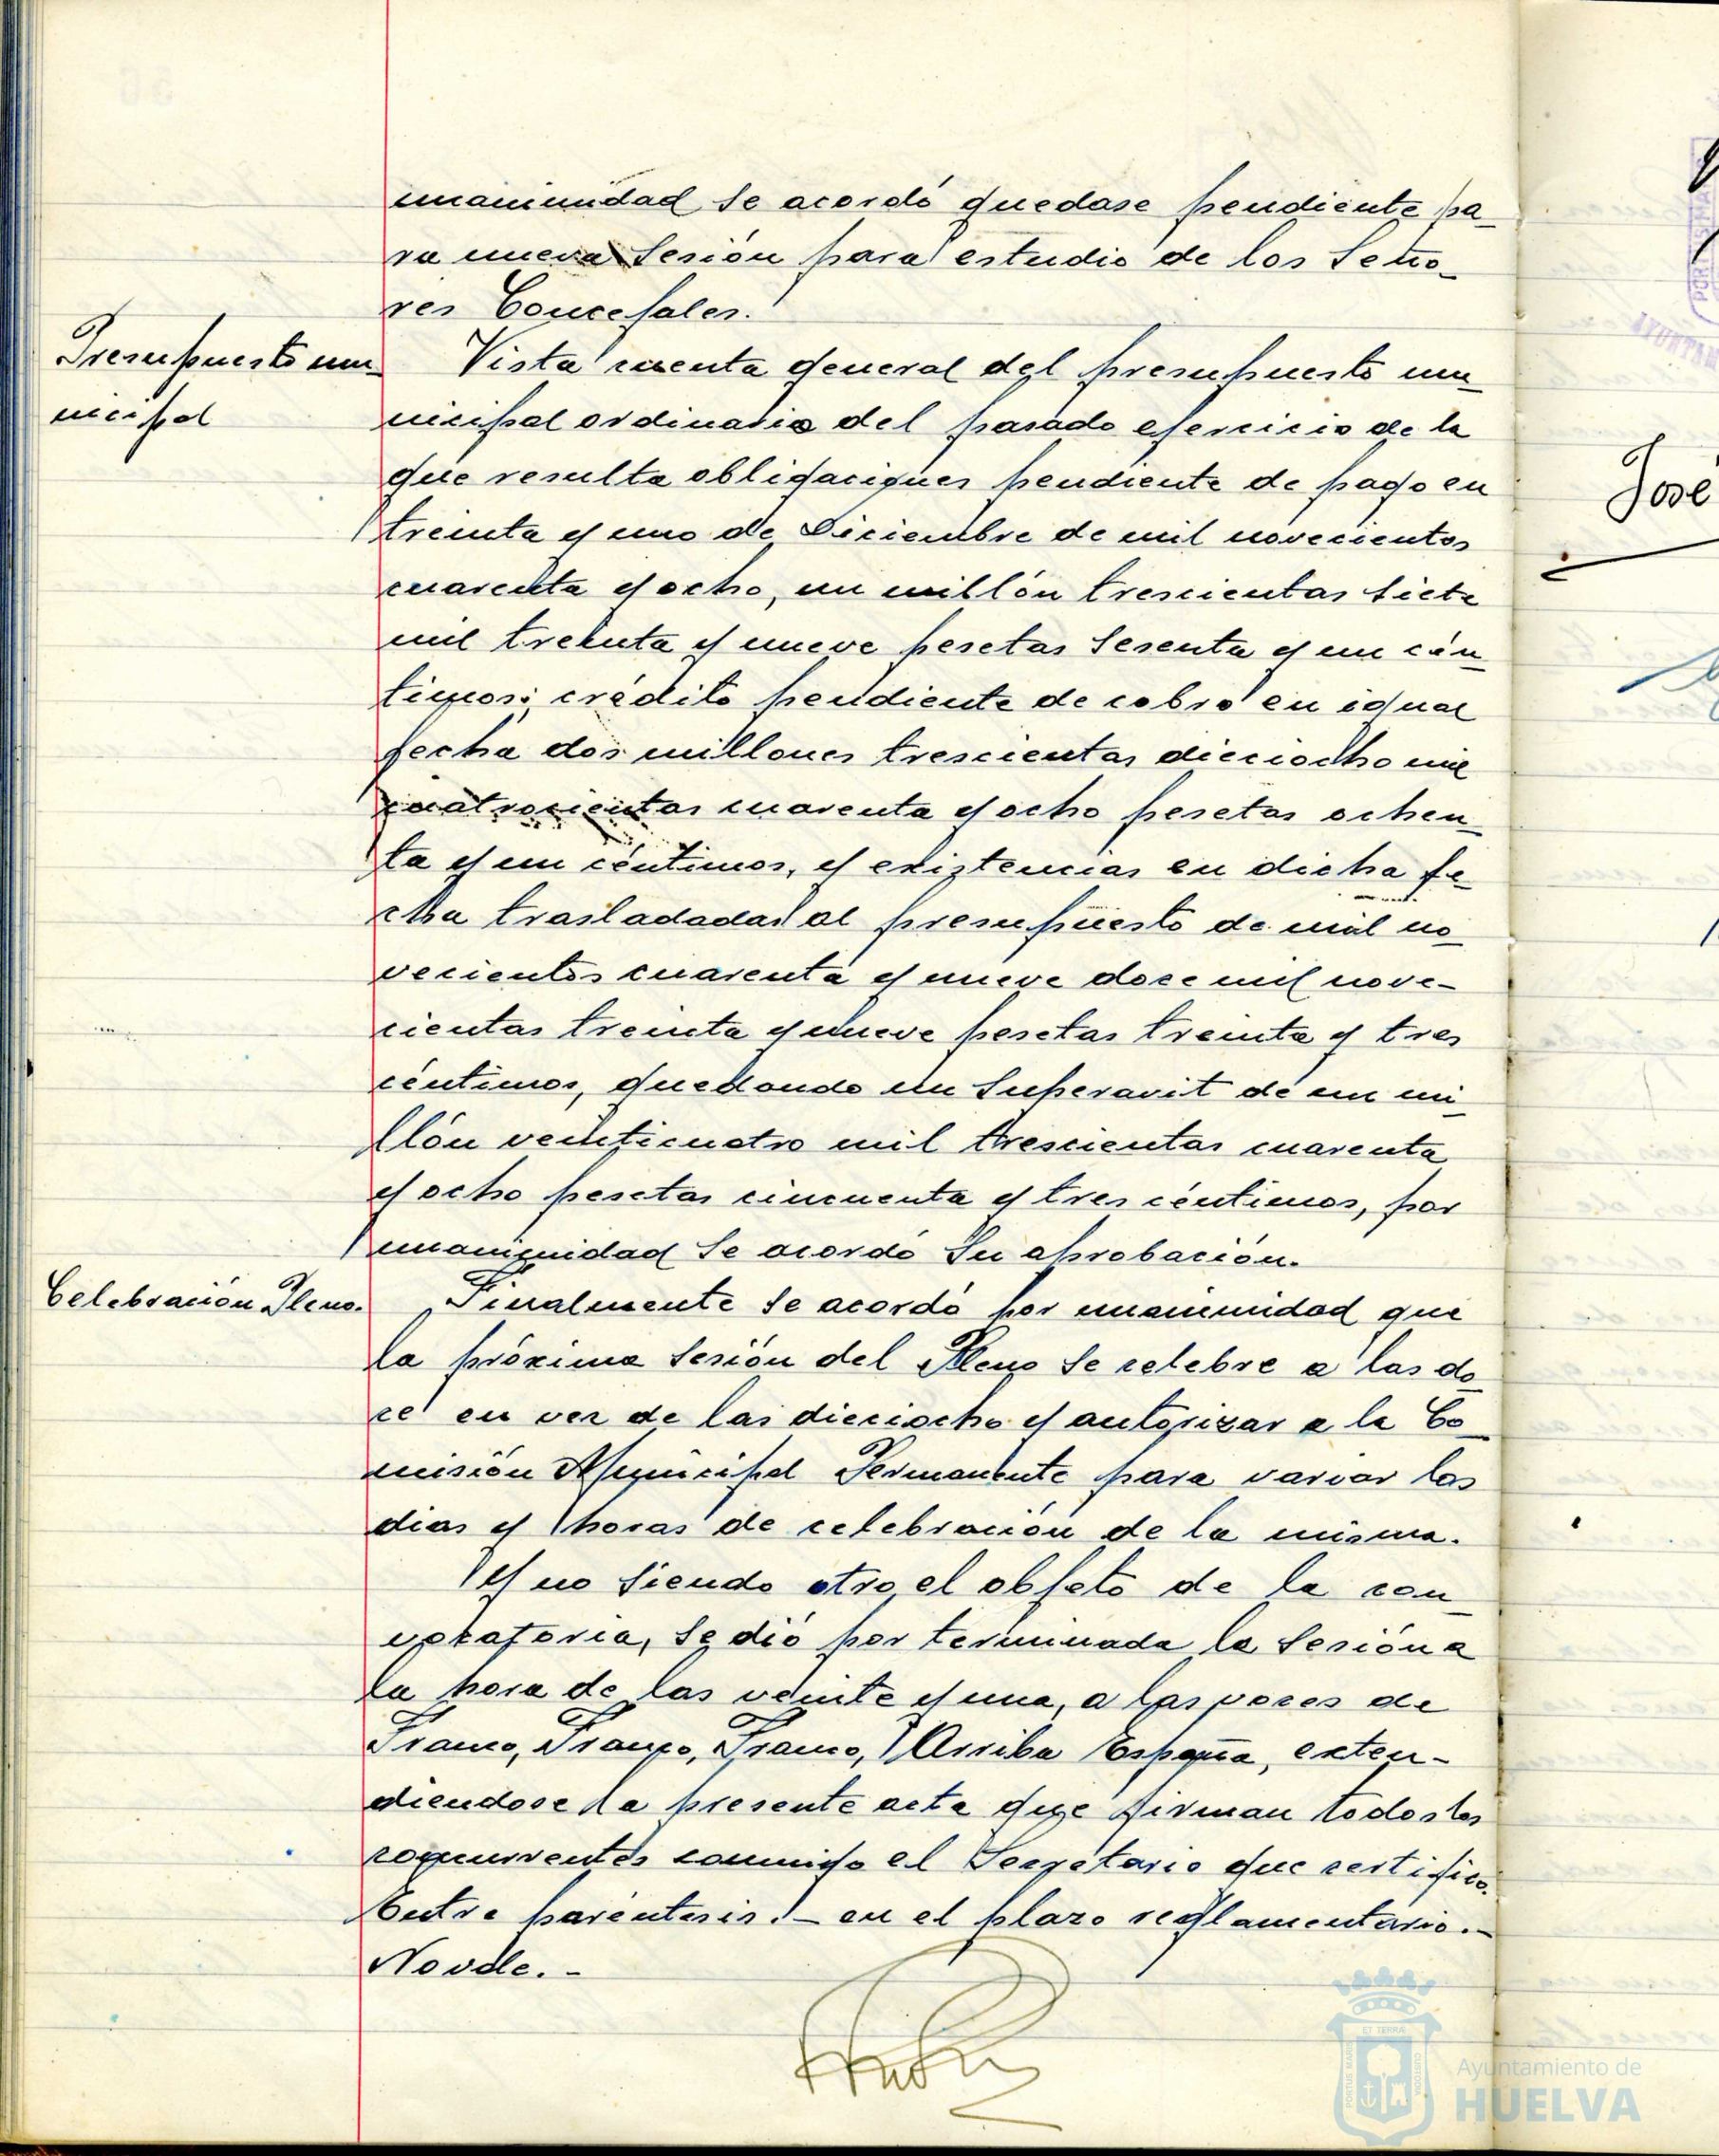 unanimidad se acordó quedase pendiente pa
ra nueva sesión para estudio de los Seño
res Concejales.
Presupuesto mu
nicipal
Vista cuenta general del presupuesto mu
nicipal ordinario del pasado ejercicio de la
que resulta obligaciones pendiente de pago en
treinta y uno de Diciembre de mil novecientos
cuarenta y ocho, un millón trescientas siete
mil treinta y nueve pesetas sesenta y un cén
timos; crédito pendiente de cobro en igual
fecha dos millones trescientas dieciocho mil
cuatrocientas cuarenta y ocho pesetas ochen
ta y un céntimos, y existencias en dicha fe
cha trasladadas al presupuesto de mil no
vecientos cuarenta y nueve doce mil nove-
cientas treinta y nueve pesetas treinta y tres
céntimos, quedando un Superavit de un mi
llón veinticuatro mil trescientas cuarenta
y ocho pesetas cincuenta y tres céntimos, por
unanimidad se acordó su aprobación.
Celebración Pleno.
Finalmente se acordó por unanimidad que
la próxima sesión del Pleno se celebre a las do
ce en vez de las dieciocho y autorizar a la Co
misión Municipal Permanente para variar los
dias y horas de celebración de la misma.
Y no siendo otro el objeto de la con
vocatoria, se dió por terminada la sesión a
la hora de las veinte y una, a las voces de
Franco, Franco, Franco, Arriba España, exten-
diendose la presente acta que firman todos los
concurrentes conmigo el Secretario que certifico.
Entre parentesis.- en el plazo reglamentario.-
No vale.-
José
Ayuntamiento de
HUELVA